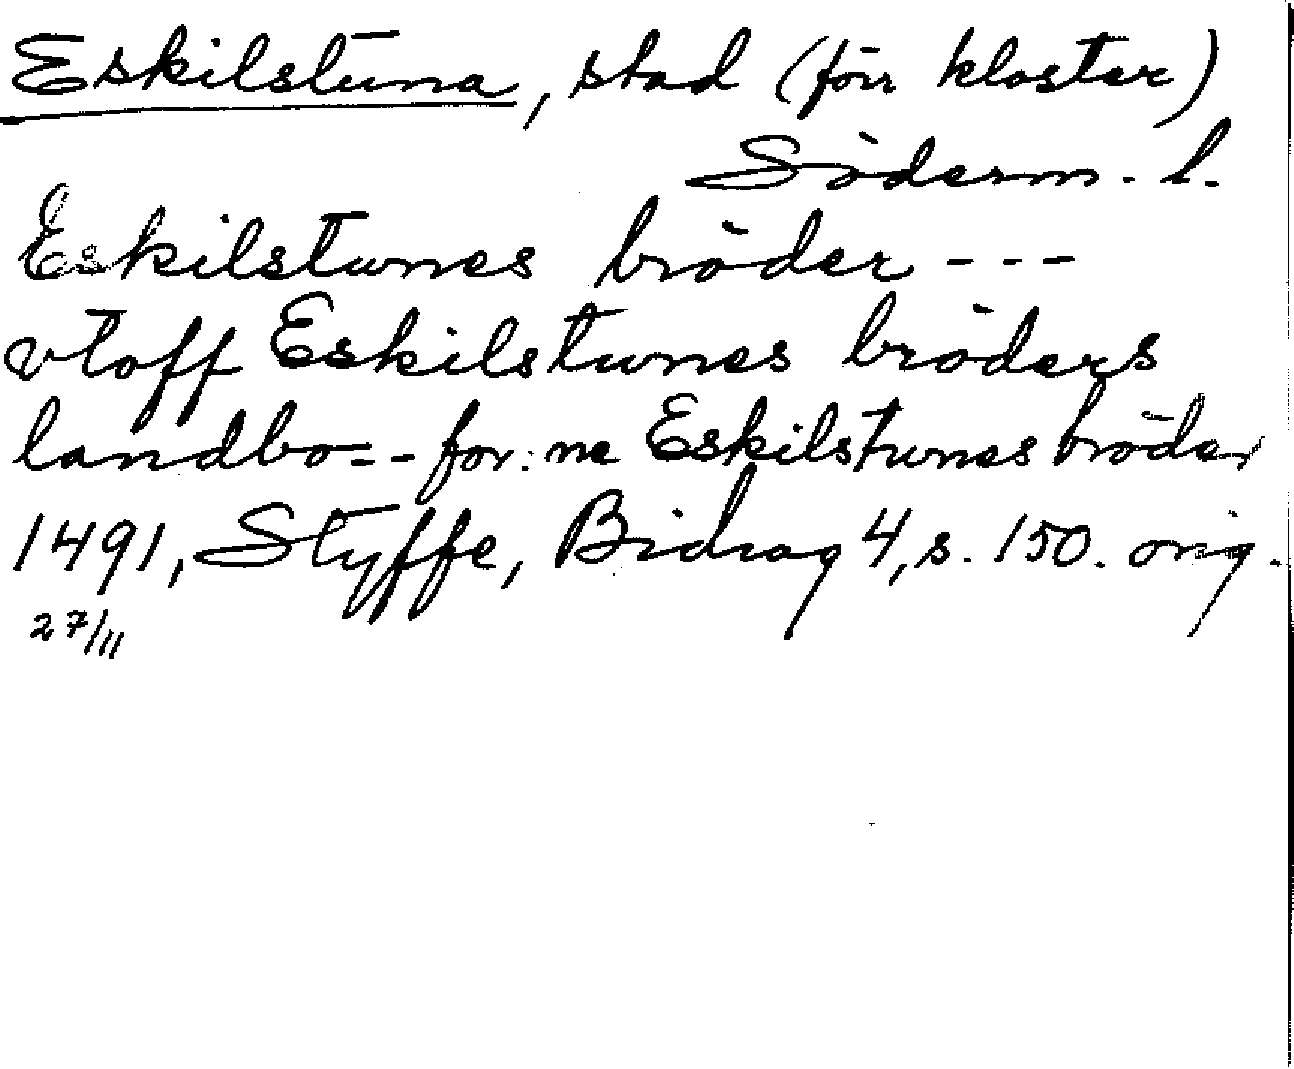 Eskilstuna, stad (förr kloster)
Söderm. l.
Eskilstunes bröder - - -
vtoff Eskilstunes bröders
landbo - - for: ne Eskilstunes bröder
1491, Styffe, Bidrag 4, s. 150. orig.
27/11